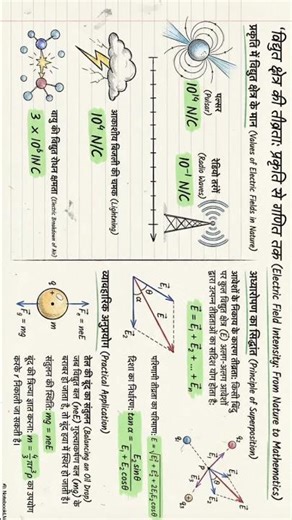 'विद्युत क्षेत्र की तीव्रता: प्रकृति से गणित तक (Electric Field Intensity: From Nature to Mathematics)
प्रकृति में विद्युत क्षेत्र के मान (Values of Electric Fields in Nature)
पल्सर
(Pulsar)
10¹⁴ N/C
रेडियो तरंगें
(Radio Waves)
10⁻¹ N/C
आकाशीय बिजली की चमक (Lightning)
10⁴ N/C
वायु की विद्युत रोधन क्षमता (Electric Breakdown of Air)
3 × 10⁶ N/C
अध्यारोपण का सिद्धांत (Principle of Superposition)
आवेशों के निकाय के कारण तीव्रता: किसी बिंदु
पर कुल विद्युत क्षेत्र (E) अलग-अलग आवेशों
द्वारा उत्पन्न तीव्रताओं का सदिश योग होता है:
E = E₁ + E₂ + ... + Eₙ
q₁
q₂
q₃
P
E₁
E₂
E
E₁
E
E₂
α
θ
परिणामी तीव्रता का परिमाण: E = √E₁² + E₂² + 2E₁E₂cosθ
दिशा का निर्धारण: tan α = E₂ sinθ / E₁ + E₂ cosθ
व्यावहारिक अनुप्रयोग (Practical Application)
तेल की बूंद का संतुलन (Balancing an Oil Drop)
जब विद्युत बल (neE) गुरुत्वाकर्षण बल (mg) के
बराबर हो जाता है, तो बूंद हवा में स्थिर हो जाती है।
संतुलन की स्थिति: mg = neE
बूंद की त्रिज्या ज्ञात करना: m = 4/3 πr³ρ का उपयोग
करके r निकाली जा सकती है।
Fₑ = neE
q
m
F₉ = mg
NotebookLM